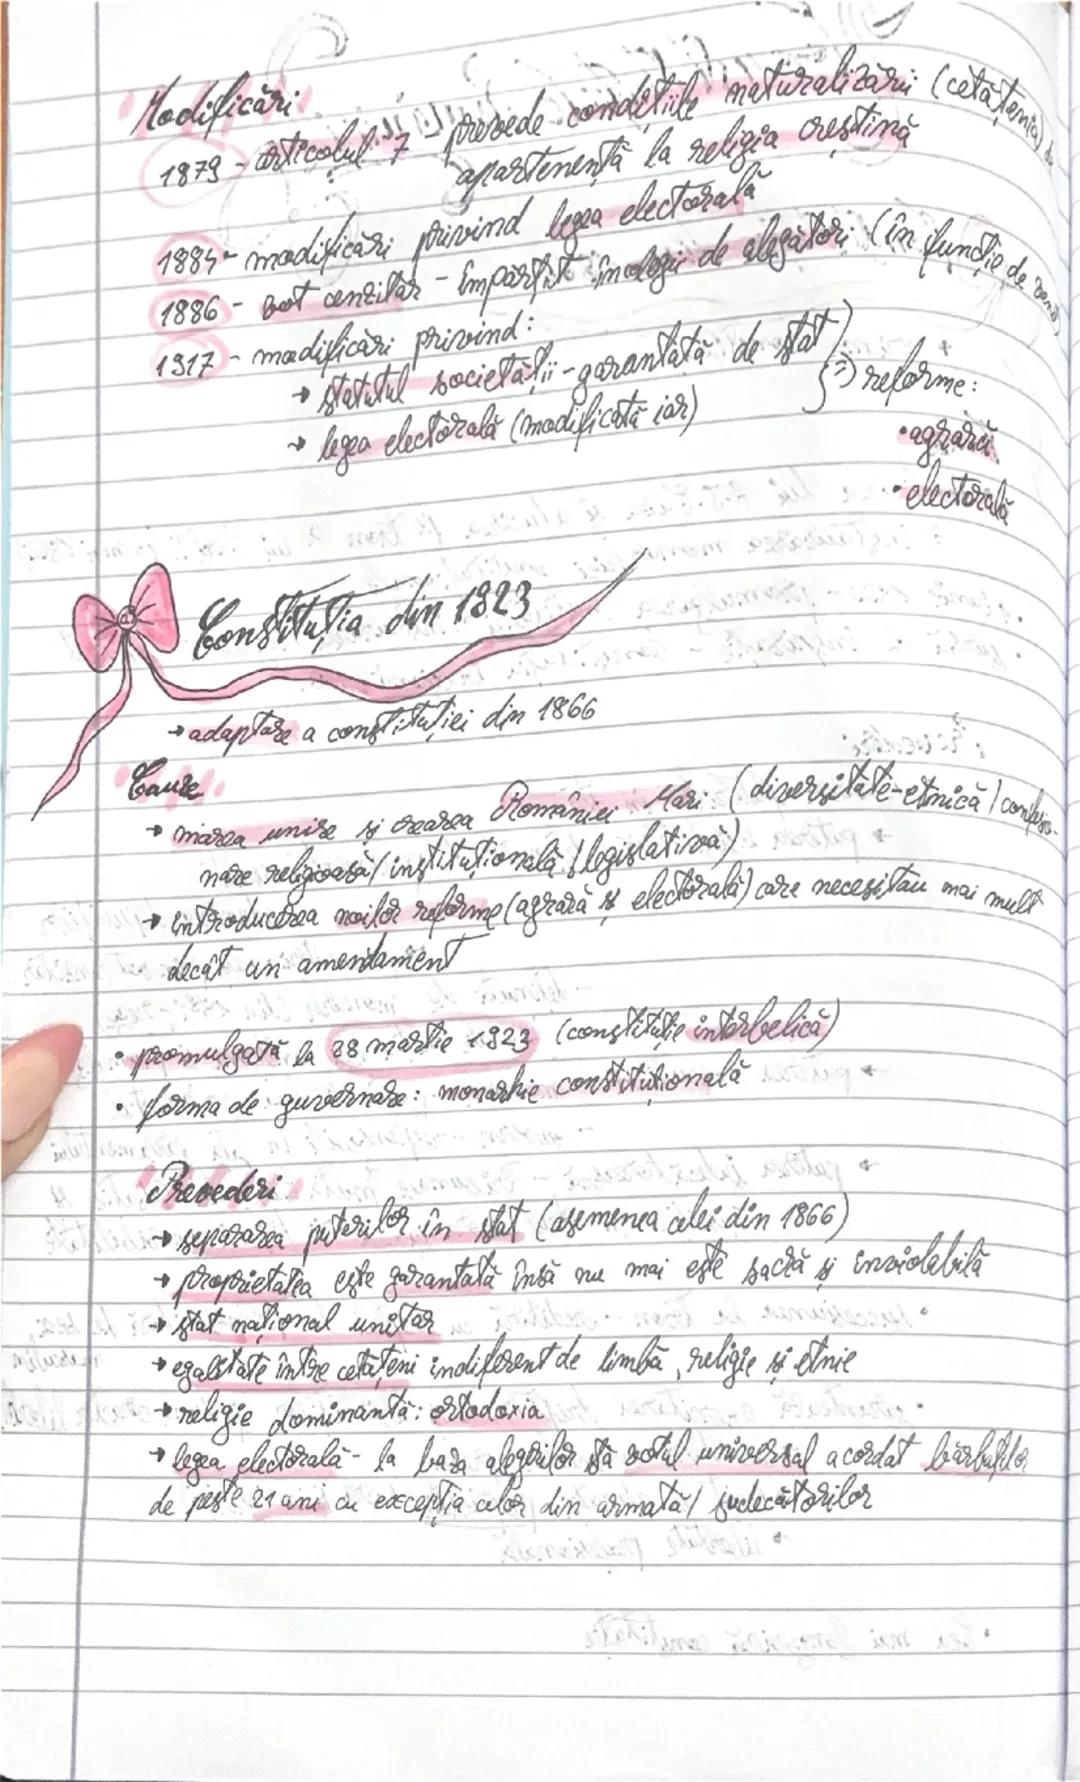 Modificări
1879 - articolul 7 - prevede condițiile naturalizării (cetățenia) de
apartenență la religia creștină
1884 - modificări privind legea electorală
1886 - vot cenzitar - împărțit în colegii de alegători (în funcție de venit)
1917 - modificări privind:
→ statutul societății - garantată de stat
→ legea electorală (modificată iar)
⇒ reforme:
• agrară
• electorală
Constituția din 1923
→ adaptare a constituției din 1866
Cauze
→ marea unire și crearea României Mari (diversitate-etnică / confesio-
nare religioasă / instituțională / legislativă)
→ introducerea noilor reforme (agrară și electorală) care necesitau mai mult
decât un amendament
• promulgată la 28 martie 1923 (constituție interbelică)
• forma de guvernare: monarhie constituțională
Prevederi
→ separarea puterilor în stat (asemenea celei din 1866)
→ proprietatea este garantată însă nu mai este sacră și inviolabilă
→ stat național unitar
→ egalitate între cetățeni indiferent de limbă, religie și etnie
→ religie dominantă: ortodoxia
→ legea electorală - la baza alegerilor stă votul universal acordat bărbaților
de peste 21 ani cu excepția celor din armată / judecătorilor